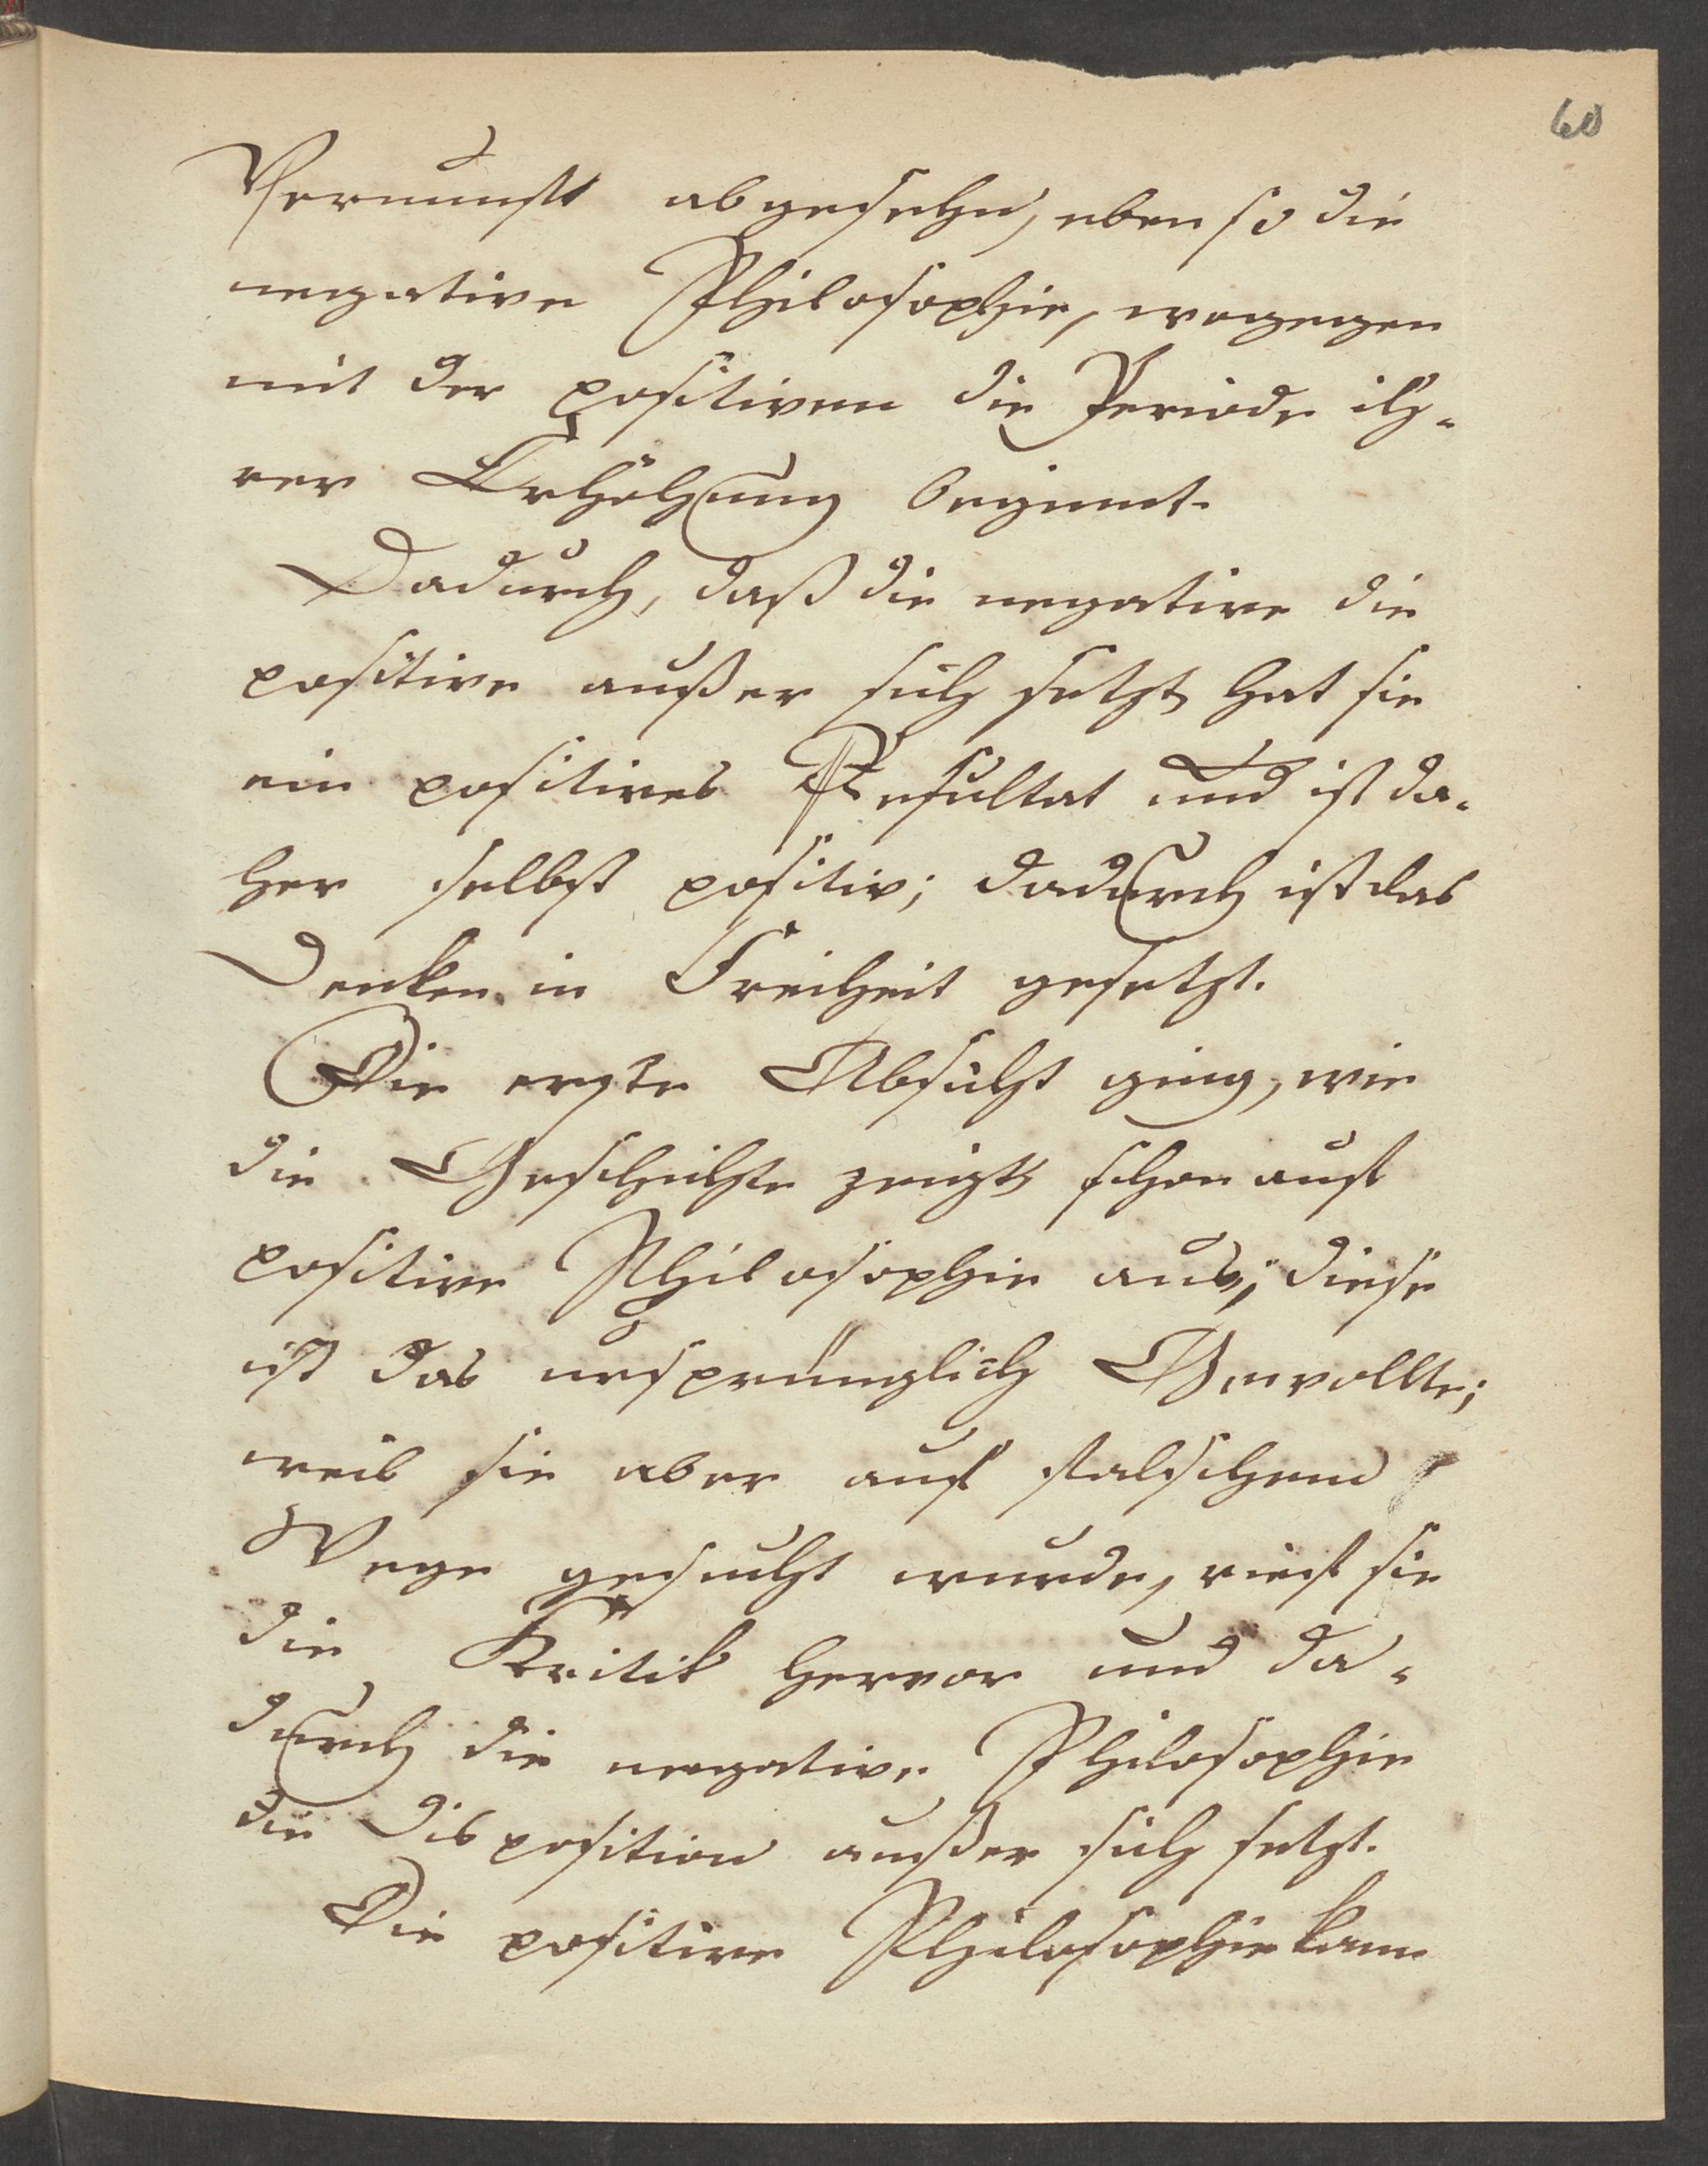 60
Vernunft abgesehn, eben so die
negative Philosophie, wogegen
mit der positiven die Periode ih-
rer Erhöhung beginnt.
Dadurch, daß die negative die
positive außer sich setzt, hat sie
ein positives Resultat und ist da-
her selbst positiv; dadurch ist das
Denken in Freiheit gesetzt.
Die erste Absicht ging, wie
die Geschichte zeigt, schon auf
positive Philosophie aus; diese
ist das ursprünglich Gewollte;
weil sie aber auf falschem
Wege gesucht wurde, rief sie
die Kritik hervor und da-
durch die negative Philosophie
die Disposition außer sich setzt.
Die positive Philosophie kann